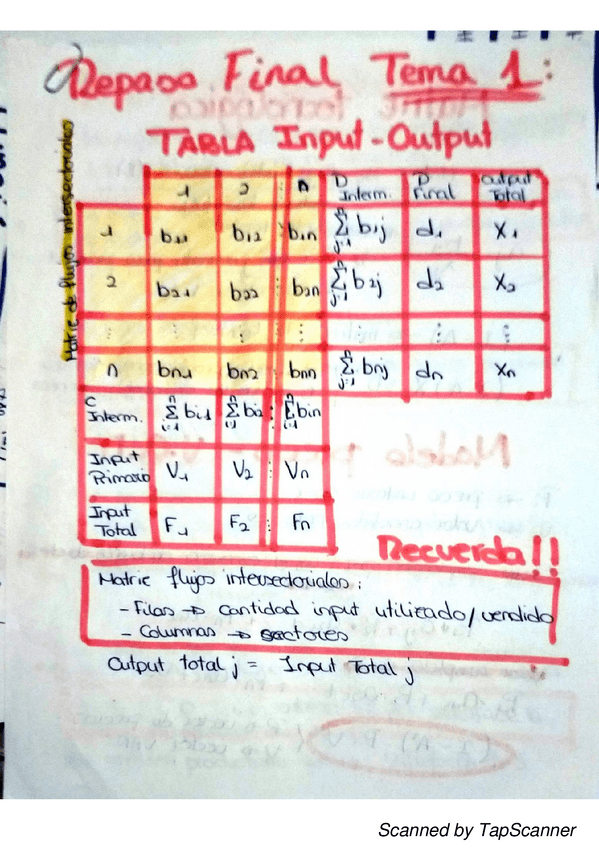 Repaso Final Tema 1:
TABLA Input-Output
Matriz de flujos intersectoriales
1 2 ⋮ n D Interm. D Final Output Total
1 b₁₁ b₁₂ ⋮ b₁n ∑ⁿj=1 b₁j d₁ X₁
2 b₂₁ b₂₂ ⋮ b₂n ∑ⁿj=1 b₂j d₂ X₂
⋮ ⋮ ⋮ ⋮ ⋮ ⋮
n bn₁ bn₂ bnn ∑ⁿj=1 bnj dn Xn
C Interm. ∑ⁿi=1 bi₁ ∑ⁿ bi₂ ⋮ ∑ⁿi=1 bin
Input Primario V₁ V₂ ⋮ Vn
Input Total F₁ F₂ ⋮ Fn
Recuerda!!
Matriz flujos intersectoriales:
- Filas → cantidad input utilizado/vendido
- Columnas → sectores
Output total j = Input Total j
Scanned by TapScanner